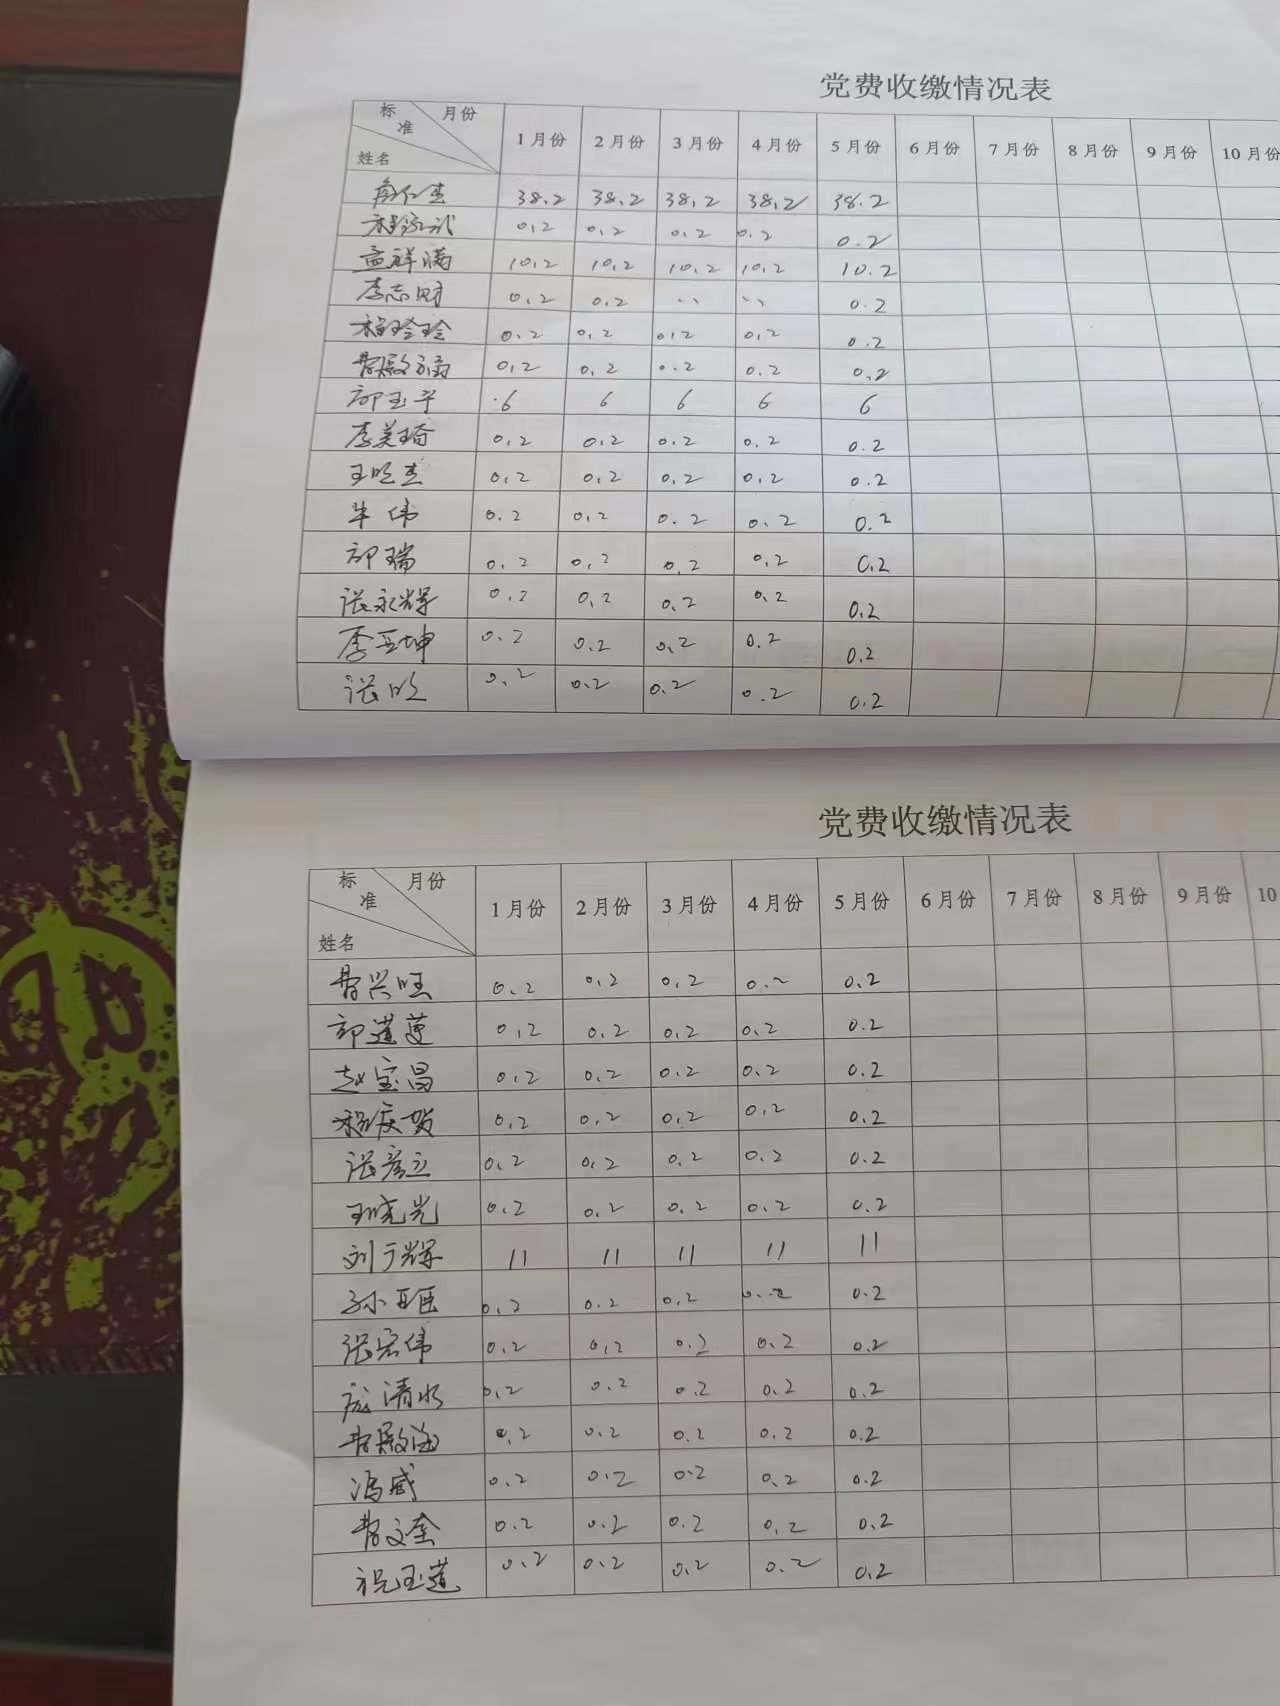 党费收缴情况表
标准 月份 姓名 1月份 2月份 3月份 4月份 5月份 6月份 7月份 8月份 9月份 10月份
38.2 38.2 38.2 38.2 38.2
0.2 0.2 0.2 0.2 0.2
孟祥满 10.2 10.2 10.2 10.2 10.2
李志财 0.2 0.2 、、 、、 0.2
程玲玲 0.2 0.2 0.2 0.2 0.2
0.2 0.2 0.2 0.2 0.2
邵玉平 6 6 6 6 6
李美琦 0.2 0.2 0.2 0.2 0.2
王明杰 0.2 0.2 0.2 0.2 0.2
牛伟 0.2 0.2 0.2 0.2 0.2
邵瑞 0.2 0.2 0.2 0.2 0.2
张永辉 0.2 0.2 0.2 0.2 0.2
李亚坤 0.2 0.2 0.2 0.2 0.2
张明 0.2 0.2 0.2 0.2 0.2
党费收缴情况表
标准 月份 姓名 1月份 2月份 3月份 4月份 5月份 6月份 7月份 8月份 9月份 10
曹兴旺 0.2 0.2 0.2 0.2 0.2
邵莲莲 0.2 0.2 0.2 0.2 0.2
赵宝昌 0.2 0.2 0.2 0.2 0.2
程庆贺 0.2 0.2 0.2 0.2 0.2
张彦立 0.2 0.2 0.2 0.2 0.2
王晓光 0.2 0.2 0.2 0.2 0.2
刘广辉 11 11 11 11 11
孙亚臣 0.2 0.2 0.2 0.2 0.2
张宏伟 0.2 0.2 0.2 0.2 0.2
庞清水 0.2 0.2 0.2 0.2 0.2
0.2 0.2 0.2 0.2 0.2
冯威 0.2 0.2 0.2 0.2 0.2
曹文奎 0.2 0.2 0.2 0.2 0.2
祝玉莲 0.2 0.2 0.2 0.2 0.2